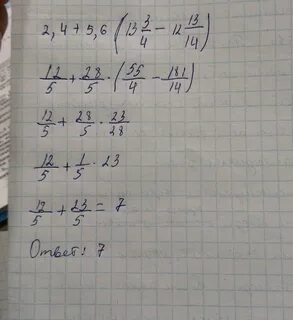 2,4 + 5,6 (13 3/4 − 12 13/14)
12/5 + 28/5 · (55/4 − 181/14)
12/5 + 28/5 · 23/28
12/5 + 1/5 · 23
12/5 + 23/5 = 7
Ответ: 7